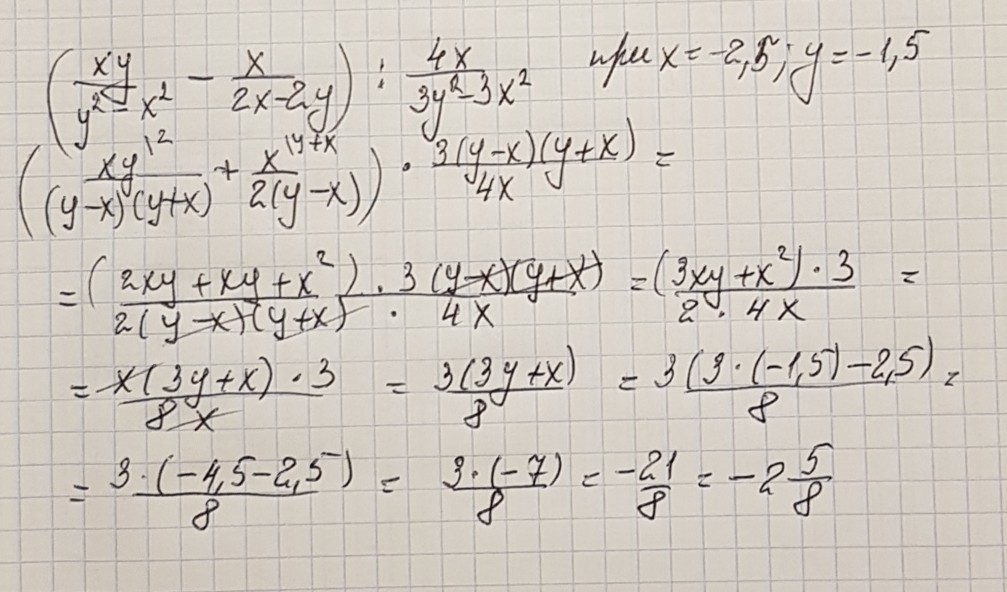 (xy/(y² - x²) - x/(2x-2y)) : 4x/(3y²-3x²) при x = -2,5; y = -1,5
(xy^{|2}/((y-x)(y+x)) + x^{|y+x}/(2(y-x))) · 3(y-x)(y+x)/4x =
= (2xy+xy+x²)/(2(y-x)(y+x)) · 3(y-x)(y+x)/4x = (3xy+x²)·3/(2·4x) =
= x(3y+x)·3/8x = 3(3y+x)/8 = 3(3·(-1,5)-2,5)/8 =
= 3·(-4,5-2,5)/8 = 3·(-7)/8 = -21/8 = -2 5/8